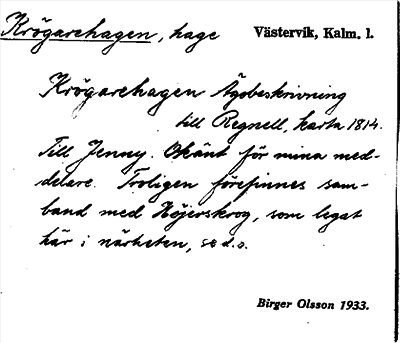 Krögarehagen, hage Västervik, Kalm. l.
Krögarehagen Ägobeskrivning
till Regnell, karta 1814.
Till Jenny. Okänt för mina med-
delare. Troligen förefinnes sam-
band med Höjerskrog, som legat
här i närheten, se d.o.
Birger Olsson 1933.